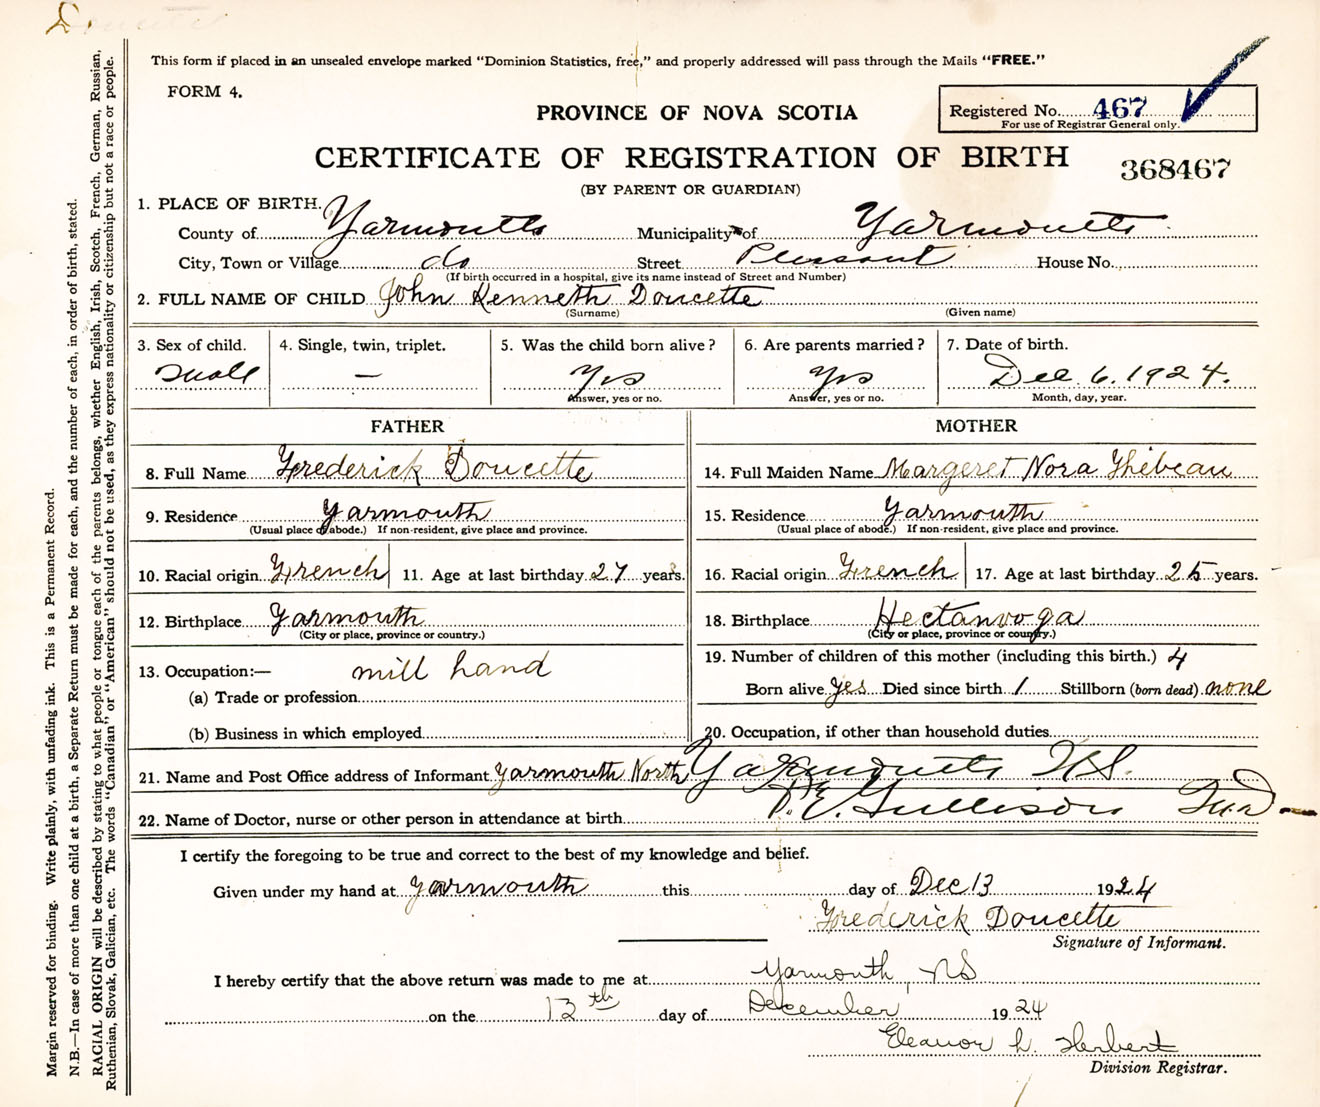 Doucette
This form if placed in an unsealed envelope marked "Dominion Statistics, free," and properly addressed will pass through the Mails "FREE."
FORM 4.
PROVINCE OF NOVA SCOTIA
Registered No. 467
For use of Registrar General only.
CERTIFICATE OF REGISTRATION OF BIRTH
368467
(BY PARENT OR GUARDIAN)
1. PLACE OF BIRTH.
County of Yarmouth Municipality of Yarmouth
City, Town or Village do Street Pleasant House No.
(If birth occurred in a hospital, give its name instead of Street and Number)
2. FULL NAME OF CHILD John Kenneth Doucette
(Surname) (Given name)
3. Sex of child. 4. Single, twin, triplet. 5. Was the child born alive? 6. Are parents married? 7. Date of birth.
Male — Yes Yes Dec. 6. 1924.
Answer, yes or no. Answer, yes or no. Month, day, year.
FATHER
8. Full Name Frederick Doucette
9. Residence Yarmouth
(Usual place of abode.) If non-resident, give place and province.
10. Racial origin French 11. Age at last birthday 27 years.
12. Birthplace Yarmouth
(City or place, province or country.)
13. Occupation:— mill hand
(a) Trade or profession
(b) Business in which employed
MOTHER
14. Full Maiden Name Margeret Nora Thibeau
15. Residence Yarmouth
(Usual place of abode.) If non-resident, give place and province.
16. Racial origin French 17. Age at last birthday 25 years.
18. Birthplace Hectanooga
(City or place, province or country.)
19. Number of children of this mother (including this birth.) 4
Born alive yes Died since birth 1 Stillborn (born dead) none
20. Occupation, if other than household duties
21. Name and Post Office address of Informant Yarmouth North Yarmouth N.S.
22. Name of Doctor, nurse or other person in attendance at birth Gullison
I certify the foregoing to be true and correct to the best of my knowledge and belief.
Given under my hand at Yarmouth this day of Dec 13 1924
Frederick Doucette
Signature of Informant.
I hereby certify that the above return was made to me at Yarmouth, NS
on the 13th day of December, 1924
Eleanor L. Herbert
Division Registrar.
Margin reserved for binding. Write plainly, with unfading ink. This is a Permanent Record.
N.B.—In case of more than one child at a birth, a Separate Return must be made for each, and the number of each, in order of birth, stated.
RACIAL ORIGIN will be described by stating to what people or tongue each of the parents belongs, whether English, Irish, Scotch, French, German, Russian,
Ruthenian, Slovak, Galician, etc. The words "Canadian" or "American" should not be used, as they express nationality or citizenship but not a race or people.